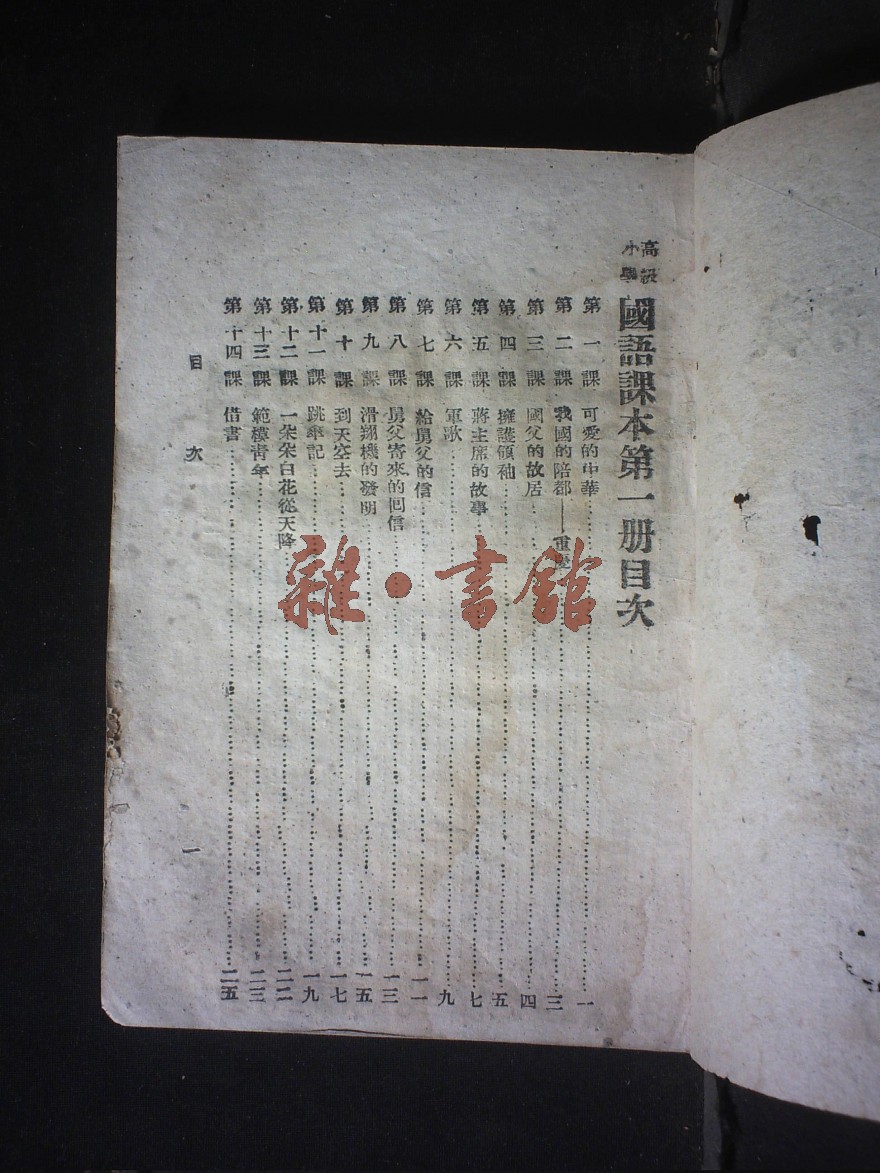 高級小學 國語課本第一册目次
第一課 可愛的中華……一
第二課 我國的陪都——重慶……三
第三課 國父的故居……四
第四課 擁護領袖……五
第五課 蔣主席的故事……七
第六課 軍歌……九
第七課 給舅父的信……一一
第八課 舅父寄來的回信……一三
第九課 滑翔機的發明……一五
第十課 到天空去……一七
第十一課 跳傘記……一九
第十二課 一朵朵白花從天降……二二
第十三課 範模青年……二三
第十四課 借書……二五
目次 一
雜·書館